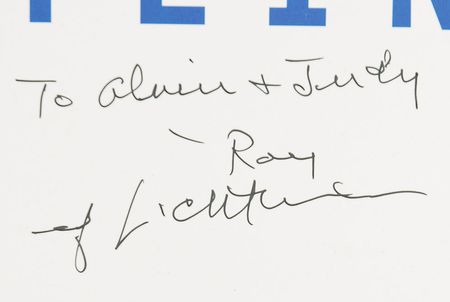 To Alvin + Judy
Roy
rf Lichtenstein